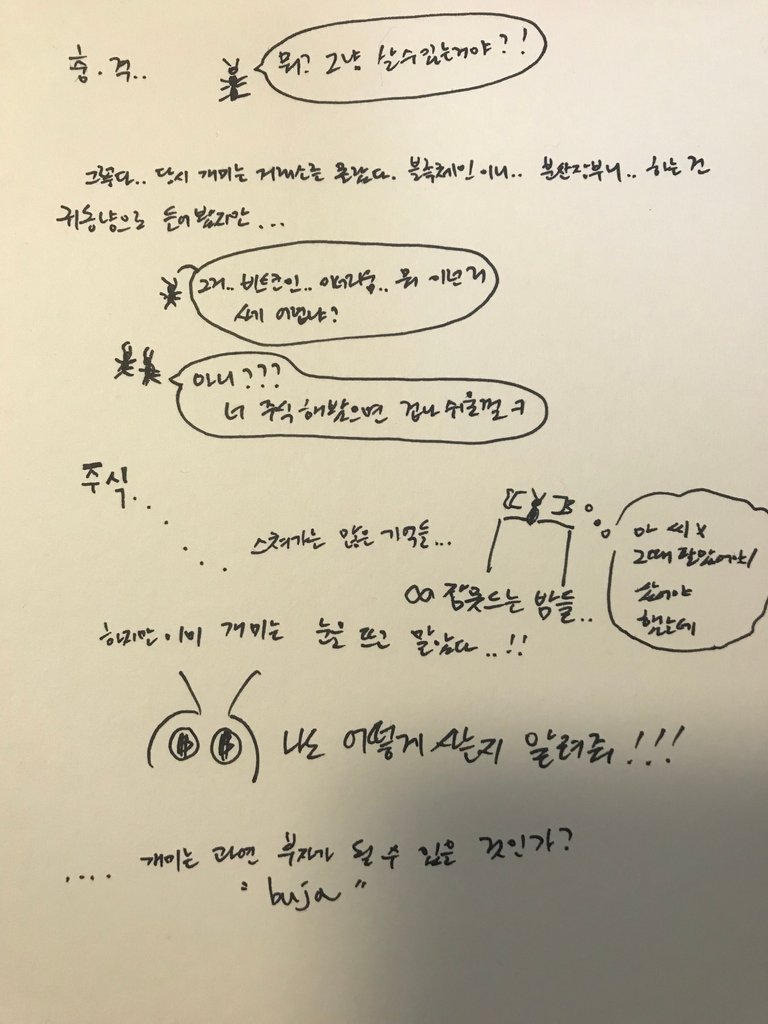 충.격..
뭐? 그냥 살수있는거야?!
그렇다.. 당시 개미는 거래소를 몰랐다. 블록체인이니.. 분산장부니.. 하는 건
귀동냥으로 들어봤지만...
그거.. 비트코인.. 이더리움.. 뭐 이런거
사기 어렵냐?
아니???
너 주식해봤으면 겁나 쉬울껄ㅋ
주식..
스쳐가는 많은 기억들...
아 씨x
그때 팔았어야
샀어야
했는데
잠못드는 밤들..
하지만 이미 개미는 눈을 뜨고 말았다..!!
나도 어떻게 사는지 알려줘!!!
.... 개미는 과연 부자가 될 수 있을 것인가?
"buja"